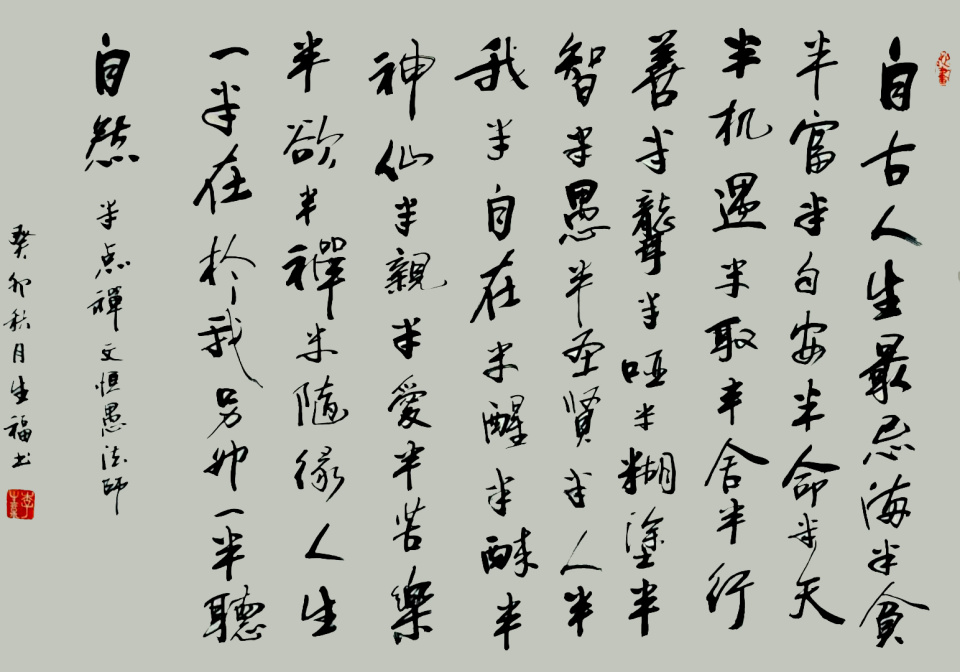 自古人生最忌满半貧
半富半自安半命半天
半机遇半取半舍半行
善半聾半哑半糊塗半
智半愚半圣贤半人半
我半自在半醒半醉半
神仙半親半愛半苦樂
半欲半禪半隨緣人生
一半在於我另外一半聽
自然 半点禪文恒愚法師
癸卯秋月生福书